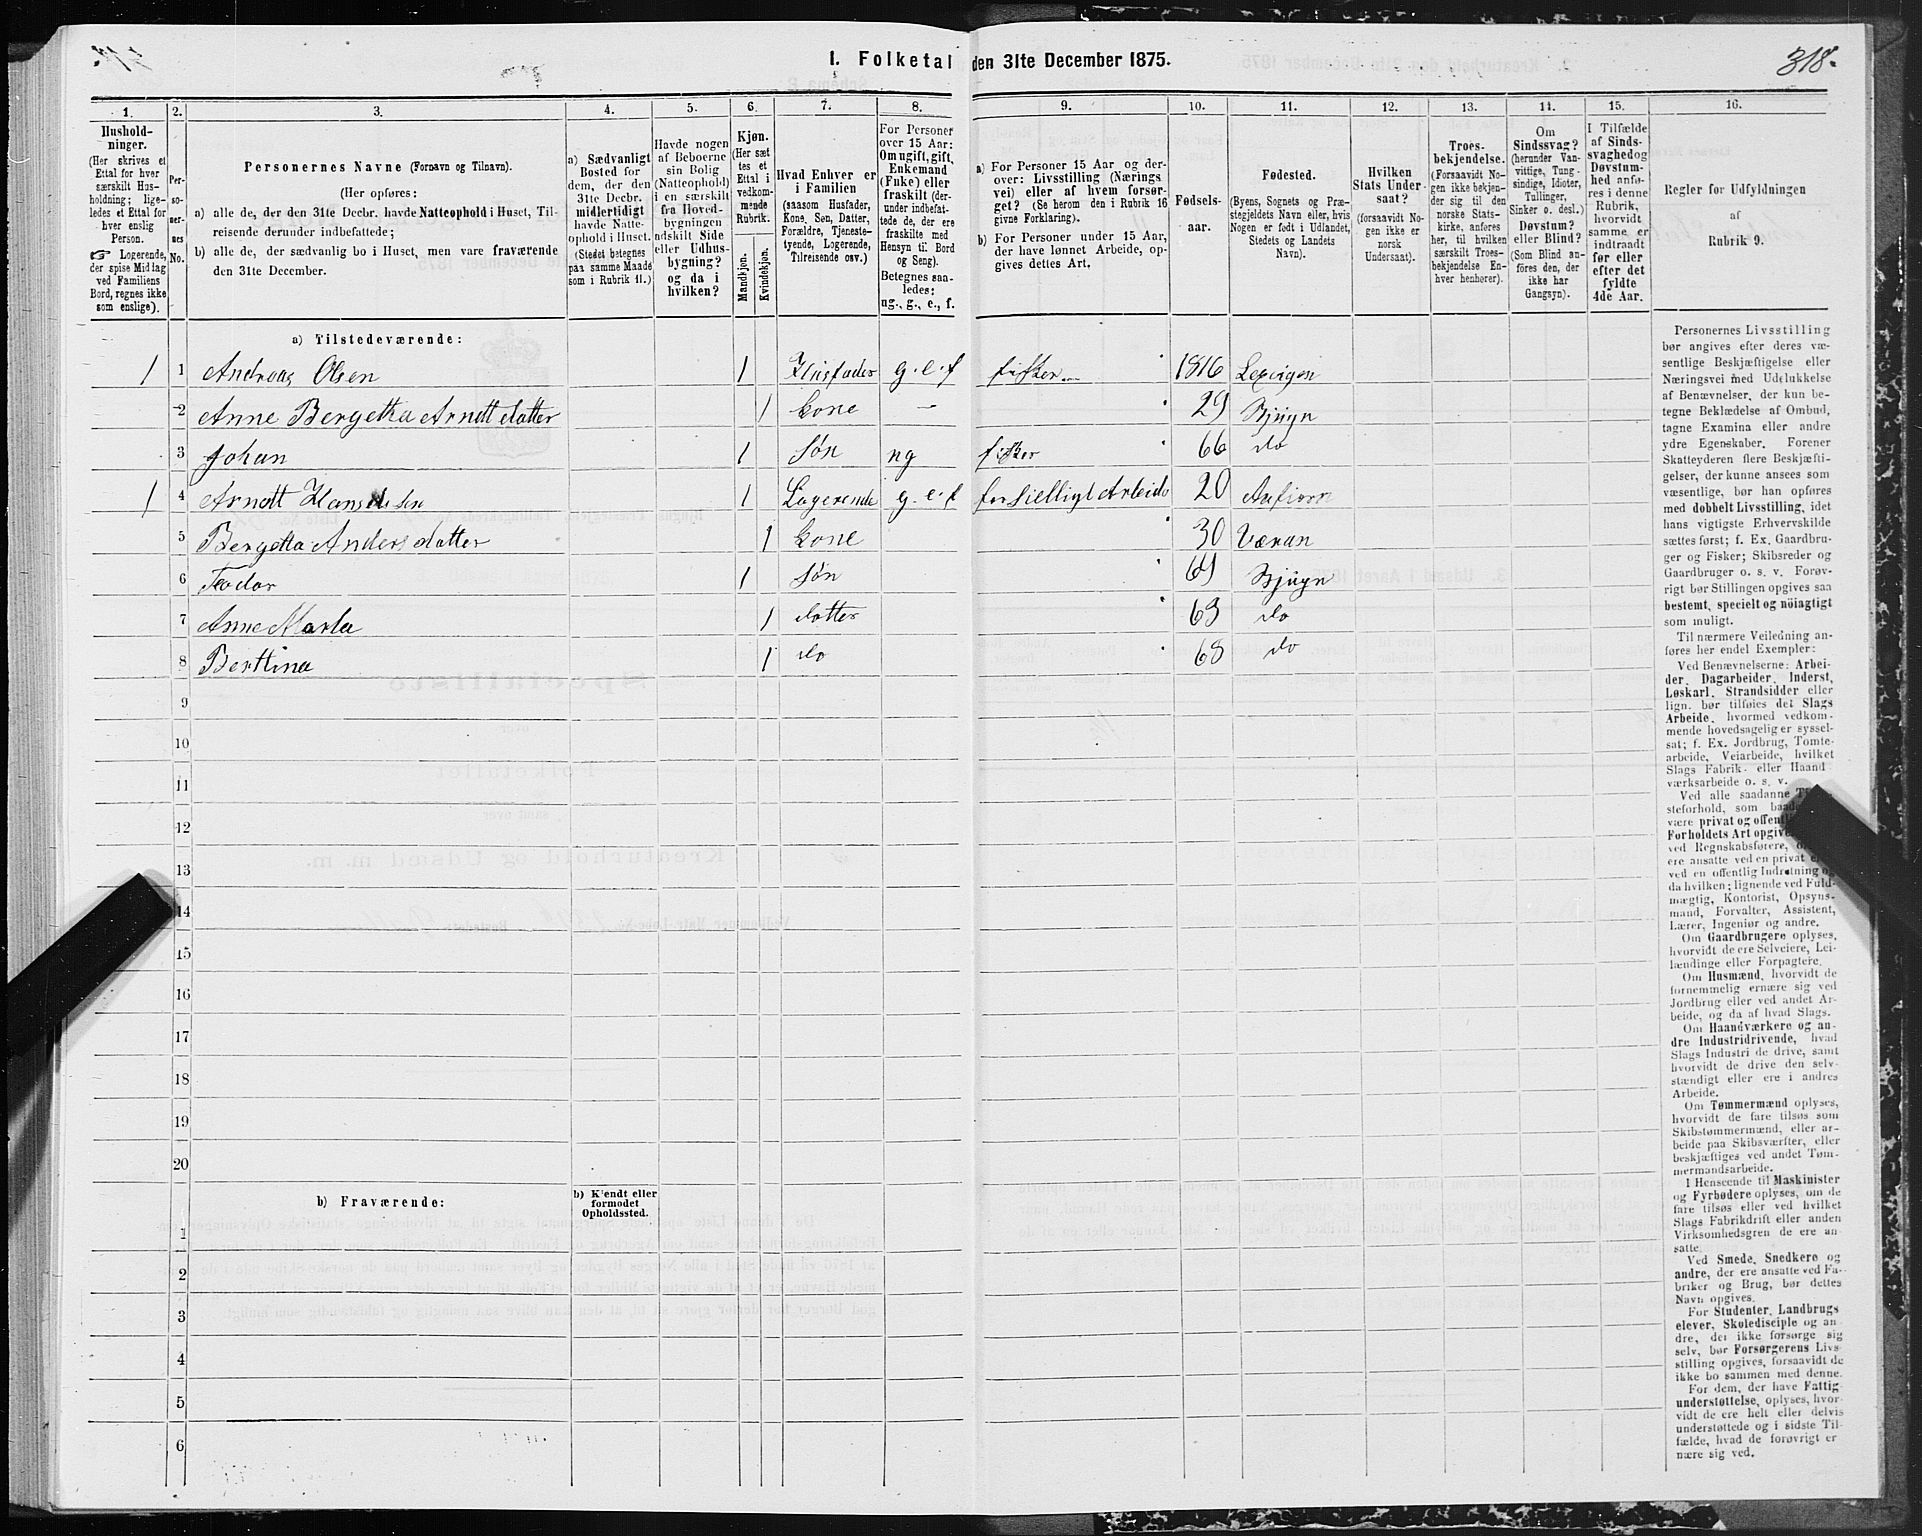 1. Folketal den 31te December 1875.
318.
1. 2. 3. 4. 5. 6. 7. 8. 9. 10. 11. 12. 13. 14. 15. 16.
Hushold-
ninger.
(Her skrives et
Ettal for hver
særskilt Hus-
holdning; lige-
ledes et Ettal for
hver enslig
Person.
☞ Logerende,
der spise Middag
ved Familiens
Bord, regnes ikke
som enslige).
Per-
so-
ner-
nes
No.
Personernes Navne (Fornavn og Tilnavn).
(Her opføres:
a) alle de, der den 31te Decbr. havde Natteophold i Huset, Til-
reisende derunder indbefattede;
b) alle de, der sædvanlig bo i Huset, men vare fraværende
den 31te December.
a) Sædvanligt
Bosted for
dem, der den
31te Decbr.
midlertidigt
havde Natte-
ophold i Huset.
(Stedet betegnes
paa samme Maade
som i Rubrik 11.)
Havde nogen
af Beboerne
sin Bolig
(Natteophold)
i en særskilt
fra Hoved-
bygningen
adskilt Side
eller Udhus-
bygning?
og da i
hvilken?
Kjøn.
(Her sæt
tes et
Ettal i
vedkom-
mende
Rubrik.
Mandkjøn.
Kvindekjøn.
Hvad Enhver er
i Familien
(saasom Husfader,
Kone, Søn, Datter,
Forældre, Tjeneste-
tyende, Logerende,
Tilreisende osv.)
For Personer
over 15 Aar:
Om ugift, gift,
Enkemand
(Fuke) eller
fraskilt (der-
under indbefat-
tede de, der ere
fraskilte med
Hensyn til Bord
og Seng).
Betegnes saa-
ledes:
ug., g., e., f.
a) For Personer 15 Aar og der-
over: Livsstilling (Nærings
vei) eller af hvem forsør-
get? (Se herom den i Rubrik 16
givne Forklaring).
b) For Personer under 15 Aar,
der have lønnet Arbeide, op-
gives dettes Art.
Fødsels-
aar.
Fødested.
(Byens, Sognets og Præ-
stegjeldets Navn eller, hvis
Nogen er født i Udlandet,
Stedets og Landets
Navn).
Hvilken
Stats Under-
saat?
(forsaavidt No-
gen ikke er
norsk
Undersaat).
Troes-
bekjendelse.
(Forsaavidt No-
gen ikke bekjen-
der sig til den
norske Stats-
kirke, anføres
her, til hvilken
særskilt Troes-
bekjendelse En-
hver henhører).
Om
Sindssvag?
(herunder Van-
vittige, Tung-
sindige, Idioter,
Tullinger,
Sinker o. desl.)
Døvstum?
eller Blind?
(Som Blind an-
føres den, der
ikke har
Gangsyn).
I Tilfælde
af Sinds-
svaghed og
Døvstum-
hed anfø-
res i denne
Rubrik,
hvorvidt
samme er
indtraadt
før eller
efter det
fyldte
4de Aar.
Regler for Udfyldningen
af
Rubrik 9.
a) Tilstedeværende:
1 1 Andreas Olsen 1 Husfader g. e. f fisker 1816 Lexvigen
2 Anne Bergetha Arnttdatter 1 kone - 29 Bjugn
3 Johan 1 Søn ug fisker 66 do
1 4 Arnott 1 Logerende g. e. f 20
5 Bergetta Andersdatter 1 kone 30 Væran
6 Teodor 1 Søn Bjugn
7 Anne Marta 1 datter 63 do
8 Berttina 1 do 68 do
9
10
11
12
13
14
15
16
17
18
19
20
b) Fraværende:
b) Kjendt eller
formodet
Opholdssted.
1
2
3
4
5
6
Personernes Livsstilling
bør angives efter deres væ-
sentlige Beskjæftigelse eller
Næringsvei med Udelukkelse
af Benævnelser, der kun be-
tegne Beklædelse af Ombud,
tagne Examina eller andre
ydre Egenskaber. Forener
Skatteyderen flere Beskjæfti-
gelser, der kunne ansees som
væsentlige, bør han opføres
med dobbelt Livsstilling, idet
hans vigtigste Erhvervskilde
sættes først; f. Ex. Gaardbru-
ger og Fisker; Skibsreder og
Gaardbruger o. s. v. Forøv-
rigt bør Stillingen opgives saa
bestemt, specielt og nöiagtigt
som muligt.
Til nærmere Veiledning an-
føres her endel Exempler:
Ved Benævnelserne: Arbei-
der, Dagarbeider, Inderst,
Løskarl, Strandsidder eller
lign. bør tilføies det Slags
Arbeide, hvormed vedkom-
mende hovedsagelig er syssel-
sat; f. Ex. Jordbrug, Tomte-
arbeide, Veiarbeide, hvilket
Slags Fabrik- eller Haand
værksarbeide o. s. v.
Ved alle saadanne
steforhold, som
være privat og
Forholdets Art
ved Regnskabsførere,
ere ansatte ved en privat
ved en offentlig Indretning og
da hvilken; lignende ved Fuld-
mægtig, Kontorist, Opsyns-
mand, Forvalter, Assistent,
Lærer, Ingeniør og andre.
Om Gaardbrugere oplyses,
hvorvidt de ere Selveiere, Lei-
lændinge eller Forpagtere.
Om Husmænd, hvorvidt de
fornemmelig ernære sig ved
Jordbrug eller ved andet Ar-
beide, og da af hvad Slags.
Om Haandværkere og an-
dre Industridrivende, hvad
Slags Industri de drive, samt
hvorvidt de drive den selv-
stændigt eller ere i andres
Arbeide.
Om Tømmermænd oplyses,
hvorvidt de fare tilsøs som
Skibstømmermænd, eller ar-
beide paa Skibsværfter, eller
beskjæftiges ved andet Tøm-
mermandsarbeide.
I Henseende til Maskinister
og Fyrbødere oplyses, om de
fare tilsøs eller ved hvilket
Slags Fabrikdrift eller anden
Virksomhedsgren de ere an-
satte.
Ved Smede, Snedkere og
andre, der ere ansatte ved Fa-
briker og Brug, bør dettes
Navn opgives.
For Studenter, Landbrugs
elever, Skoledisciple og an-
dre, der ikke forsørge sig
selv, bør Forsørgerens Livs-
stilling opgives, forsaavidt de
ikke bo sammen med denne.
For dem, der have Fattig-
understøttelse, oplyses, hvor-
vidt de ere helt eller delvis
understøttede og i sidste Til-
fælde, hvad de forøvrigt er
nære sig ved.